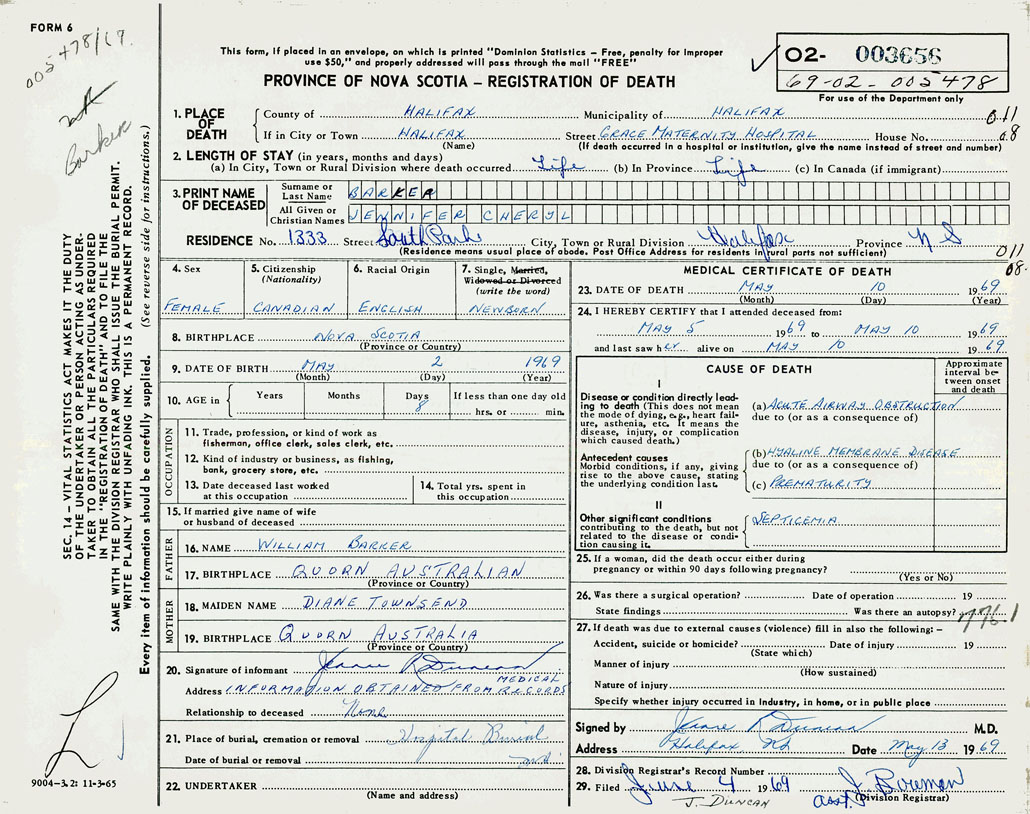 FORM 6
005478/69.
Barker
This form, if placed in an envelope, on which is printed "Dominion Statistics – Free, penalty for improper
use $50," and properly addressed will pass through the mail "FREE"
PROVINCE OF NOVA SCOTIA – REGISTRATION OF DEATH
02- 003656
69-02-005478
For use of the Department only
1. PLACE OF DEATH
County of HALIFAX Municipality of HALIFAX 011
If in City or Town HALIFAX Street GRACE MATERNITY HOSPITAL House No. 08
(Name) (If death occurred in a hospital or institution, give the name instead of street and number)
2. LENGTH OF STAY (in years, months and days)
(a) In City, Town or Rural Division where death occurred Life (b) In Province Life (c) In Canada (if immigrant)
3. PRINT NAME OF DECEASED
Surname or Last Name BARKER
All Given or Christian Names JENNIFER CHERYL
RESIDENCE No. 1333 Street South Park City, Town or Rural Division Halifax Province N S
(Residence means usual place of abode. Post Office Address for residents in rural parts not sufficient) 011
08.
4. Sex
FEMALE
5. Citizenship (Nationality)
CANADIAN
6. Racial Origin
ENGLISH
7. Single, Married, Widowed or Divorced (write the word)
NEWBORN
8. BIRTHPLACE NOVA SCOTIA
(Province or Country)
9. DATE OF BIRTH MAY 2 1969
(Month) (Day) (Year)
10. AGE in Years Months Days 8 If less than one day old
hrs. or min.
OCCUPATION
11. Trade, profession, or kind of work as
fisherman, office clerk, sales clerk, etc.
12. Kind of industry or business, as fishing,
bank, grocery store, etc.
13. Date deceased last worked
at this occupation
14. Total yrs. spent in
this occupation
15. If married give name of wife
or husband of deceased
FATHER
16. NAME WILLIAM BARKER
17. BIRTHPLACE QUORN AUSTRALIAN
(Province or Country)
MOTHER
18. MAIDEN NAME DIANE TOWNSEND
19. BIRTHPLACE QUORN AUSTRALIA
(Province or Country)
20. Signature of informant Jeanne R Duncan
Address INFORMATION OBTAINED FROM MEDICAL RECORDS
Relationship to deceased None
21. Place of burial, cremation or removal Hospital Burial
Date of burial or removal
22. UNDERTAKER
(Name and address)
MEDICAL CERTIFICATE OF DEATH
23. DATE OF DEATH MAY 10 1969
(Month) (Day) (Year)
24. I HEREBY CERTIFY that I attended deceased from:
MAY 5 1969 to MAY 10 1969
and last saw her alive on MAY 10 1969
CAUSE OF DEATH
Approximate interval between onset and death
I
Disease or condition directly leading to death (This does not mean the mode of dying, e.g., heart failure, asthenia, etc. It means the disease, injury, or complication which caused death.)
(a) ACUTE AIRWAY OBSTRUCTION
due to (or as a consequence of)
Antecedent causes
Morbid conditions, if any, giving rise to the above cause, stating the underlying condition last.
(b) HYALINE MEMBRANE DISEASE
due to (or as a consequence of)
(c) PREMATURITY
II
Other significant conditions
contributing to the death, but not related to the disease or condition causing it.
SEPTICEMIA
25. If a woman, did the death occur either during
pregnancy or within 90 days following pregnancy?
(Yes or No)
26. Was there a surgical operation? Date of operation 19
State findings Was there an autopsy? 776.1
27. If death was due to external causes (violence) fill in also the following: –
Accident, suicide or homicide? Date of injury 19
(State which)
Manner of injury
(How sustained)
Nature of injury
Specify whether injury occurred in industry, in home, or in public place
Signed by Jeanne R Duncan M.D.
Address Halifax NS Date May 13 1969
28. Division Registrar's Record Number
29. Filed June 4 1969 asst. J. Bowman
J. DUNCAN (Division Registrar)
SEC. 14 – VITAL STATISTICS ACT MAKES IT THE DUTY
OF THE UNDERTAKER OR PERSON ACTING AS UNDER-
TAKER TO OBTAIN ALL THE PARTICULARS REQUIRED
IN THE "REGISTRATION OF DEATH" AND TO FILE THE
SAME WITH THE DIVISION REGISTRAR WHO SHALL ISSUE THE BURIAL PERMIT.
WRITE PLAINLY WITH UNFADING INK. THIS IS A PERMANENT RECORD.
Every item of information should be carefully supplied. (See reverse side for instructions.)
9004–3.2: 11-3-65